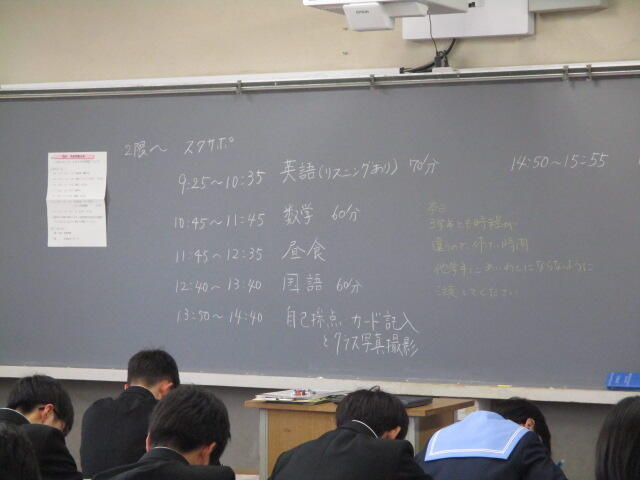 EPSON
2限〜 スタサポ
9:25〜10:35 英語(リスニングあり) 70分
14:50〜15:55
10:45〜11:45 数学 60分
11:45〜12:35 昼食
12:40〜13:40 国語 60分
13:50〜14:40 自己採点 カード記入
とクラス写真撮影
本日
3学年とも時程が
違うので、休み時間
他学年にめいわくにならないように
注意してください